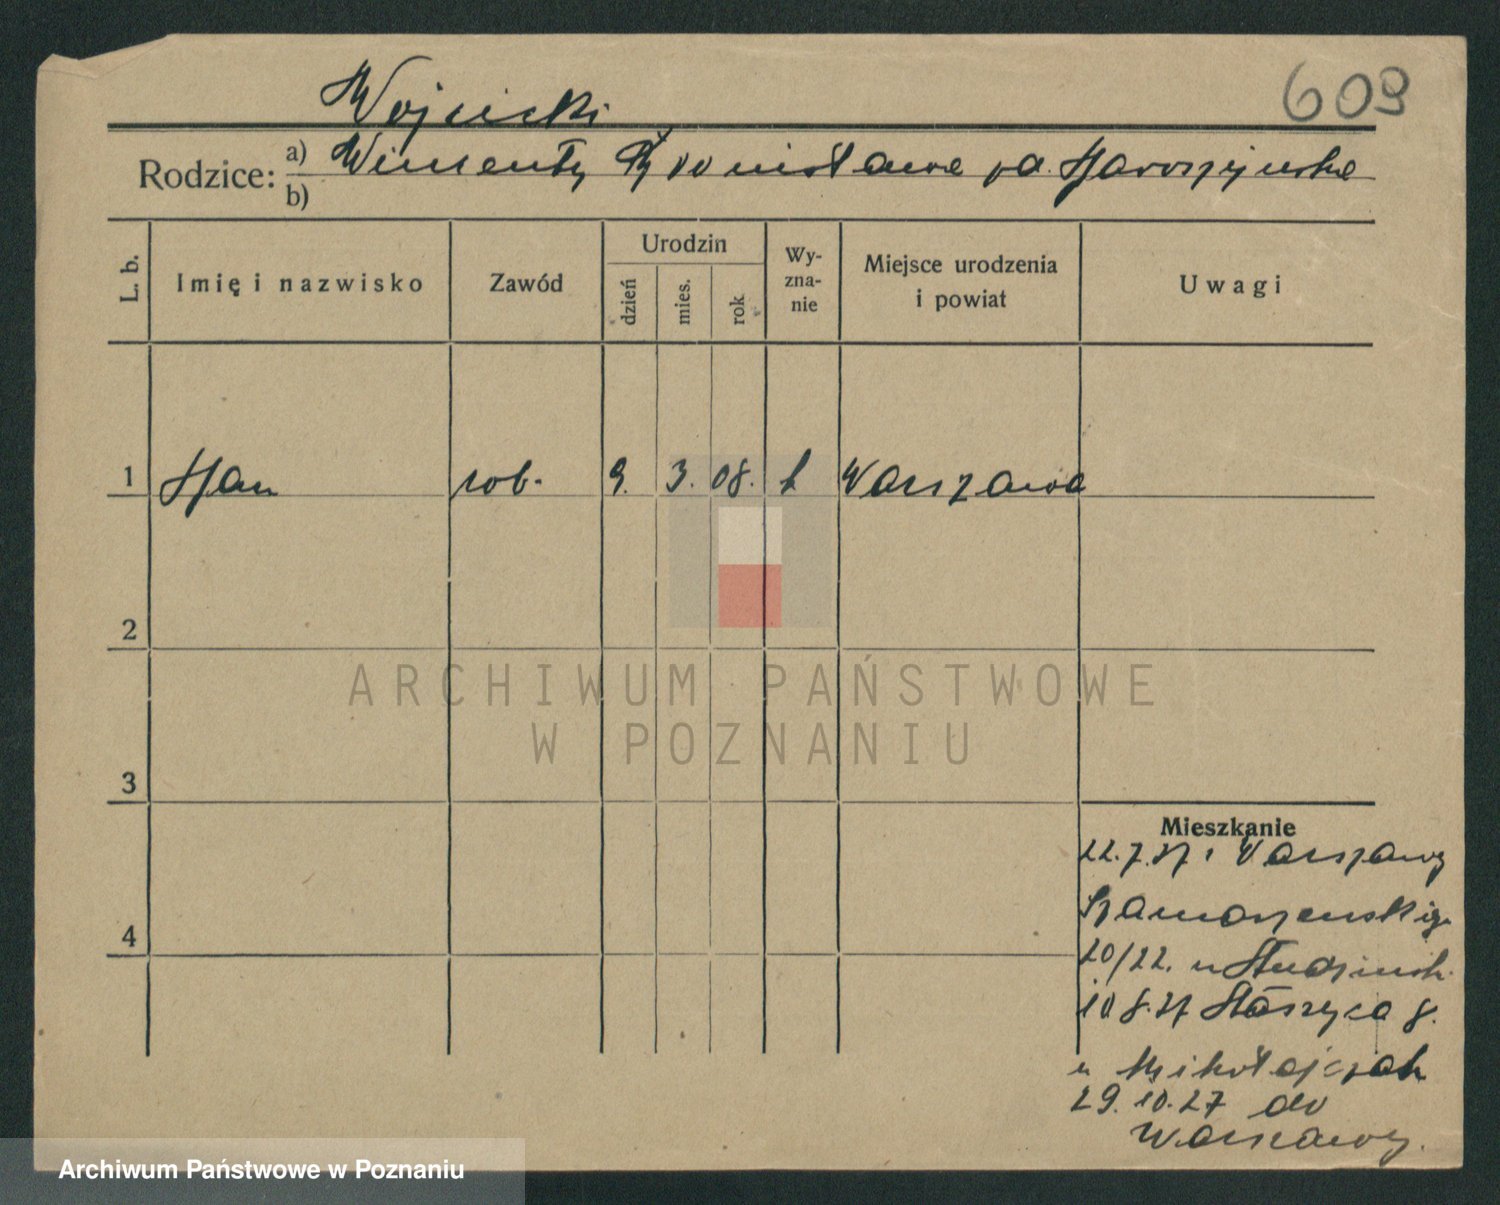 609
Wojcicki
Rodzice: a) Wincenty Bronisława zd. Jaroszyńska
b)
L. b. Imię i nazwisko Zawód Urodzin dzień mies. rok Wy-zna-nie Miejsce urodzenia i powiat Uwagi
1 Jan rob. 9. 3. 08. k Warszawa
2
3
4
ARCHIWUM PAŃSTWOWE
W POZNANIU
Mieszkanie
22.7.27 z Warszawy
20/22. u
10.8.27 Staszyca 8.
u Mikołajczak
29.10.27 do
Warszawy.
Archiwum Państwowe w Poznaniu